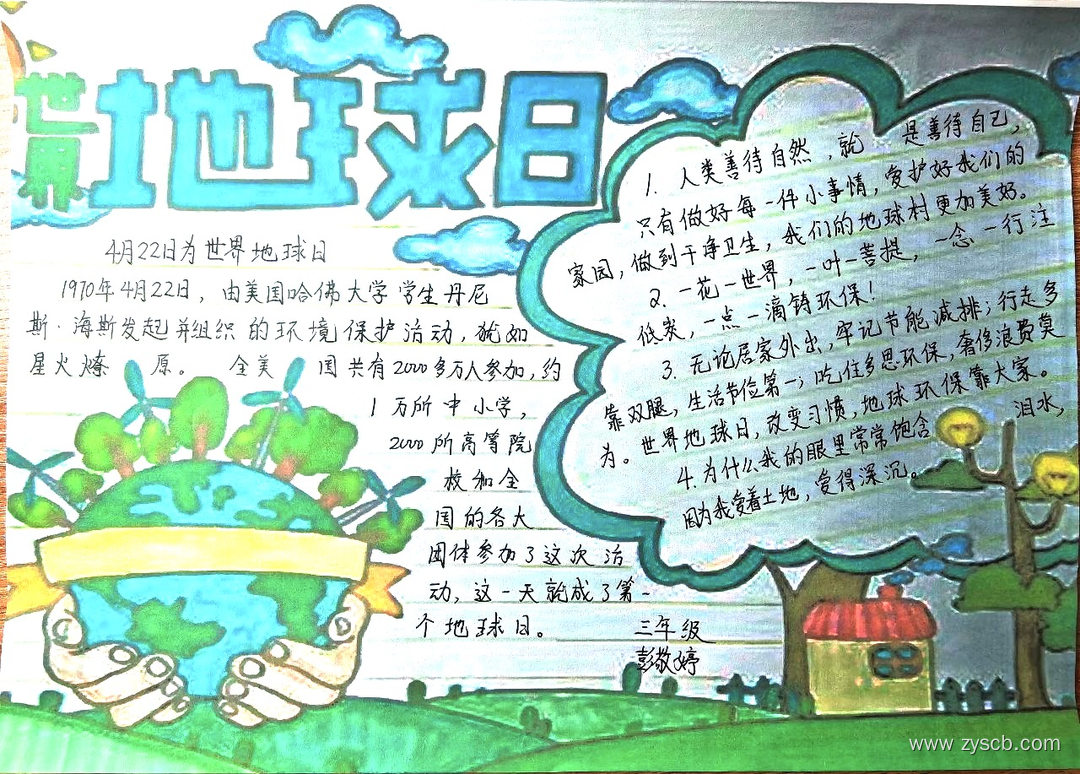 世界地球日
4月22日为世界地球日
1970年4月22日，由美国哈佛大学学生丹尼
斯·海斯发起并组织的环境保护活动，犹如
星火燎 原。 全美 国共有2000多万人参加，约
1万所中小学，
2000所高等院
校和全
国的各大
团体参加了这次活
动，这一天就成了第一
个地球日。
三年级
彭敬婷
1. 人类善待自然，就 是善待自己，
只有做好每一件小事情，爱护好我们的
家园，做到干净卫生，我们的地球村更加美好。
2. 一花一世界，一叶一菩提，一念一行注
低炭，一点一滴铸环保！
3. 无论居家外出，牢记节能减排；行走多
靠双腿，生活节俭第一；吃住多思环保，奢侈浪费莫
为。世界地球日，改变习惯，地球环保靠大家。
4.为什么我的眼里常常饱含 泪水，
因为我爱着土地，爱得深沉。
www.zyscb.com